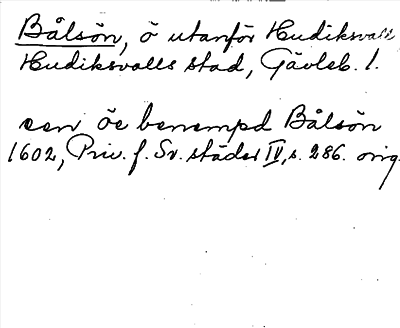 Bålsön, ö utanför Hudiksvall
Hudiksvalls stad, Gävleb. l.
een öe benempd Bålsön
1602, Priv. f. Sv. städer IV, s. 286. orig.